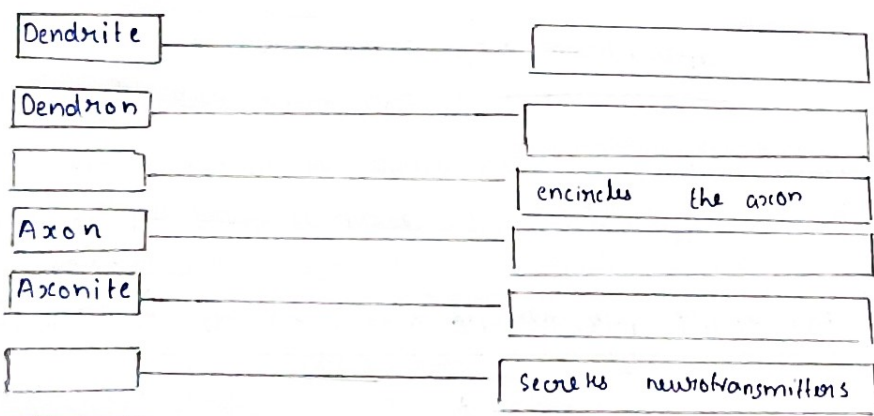 Dendrite
Dendron
encircles the axon
Axon
Axonite
secretes neurotransmitters